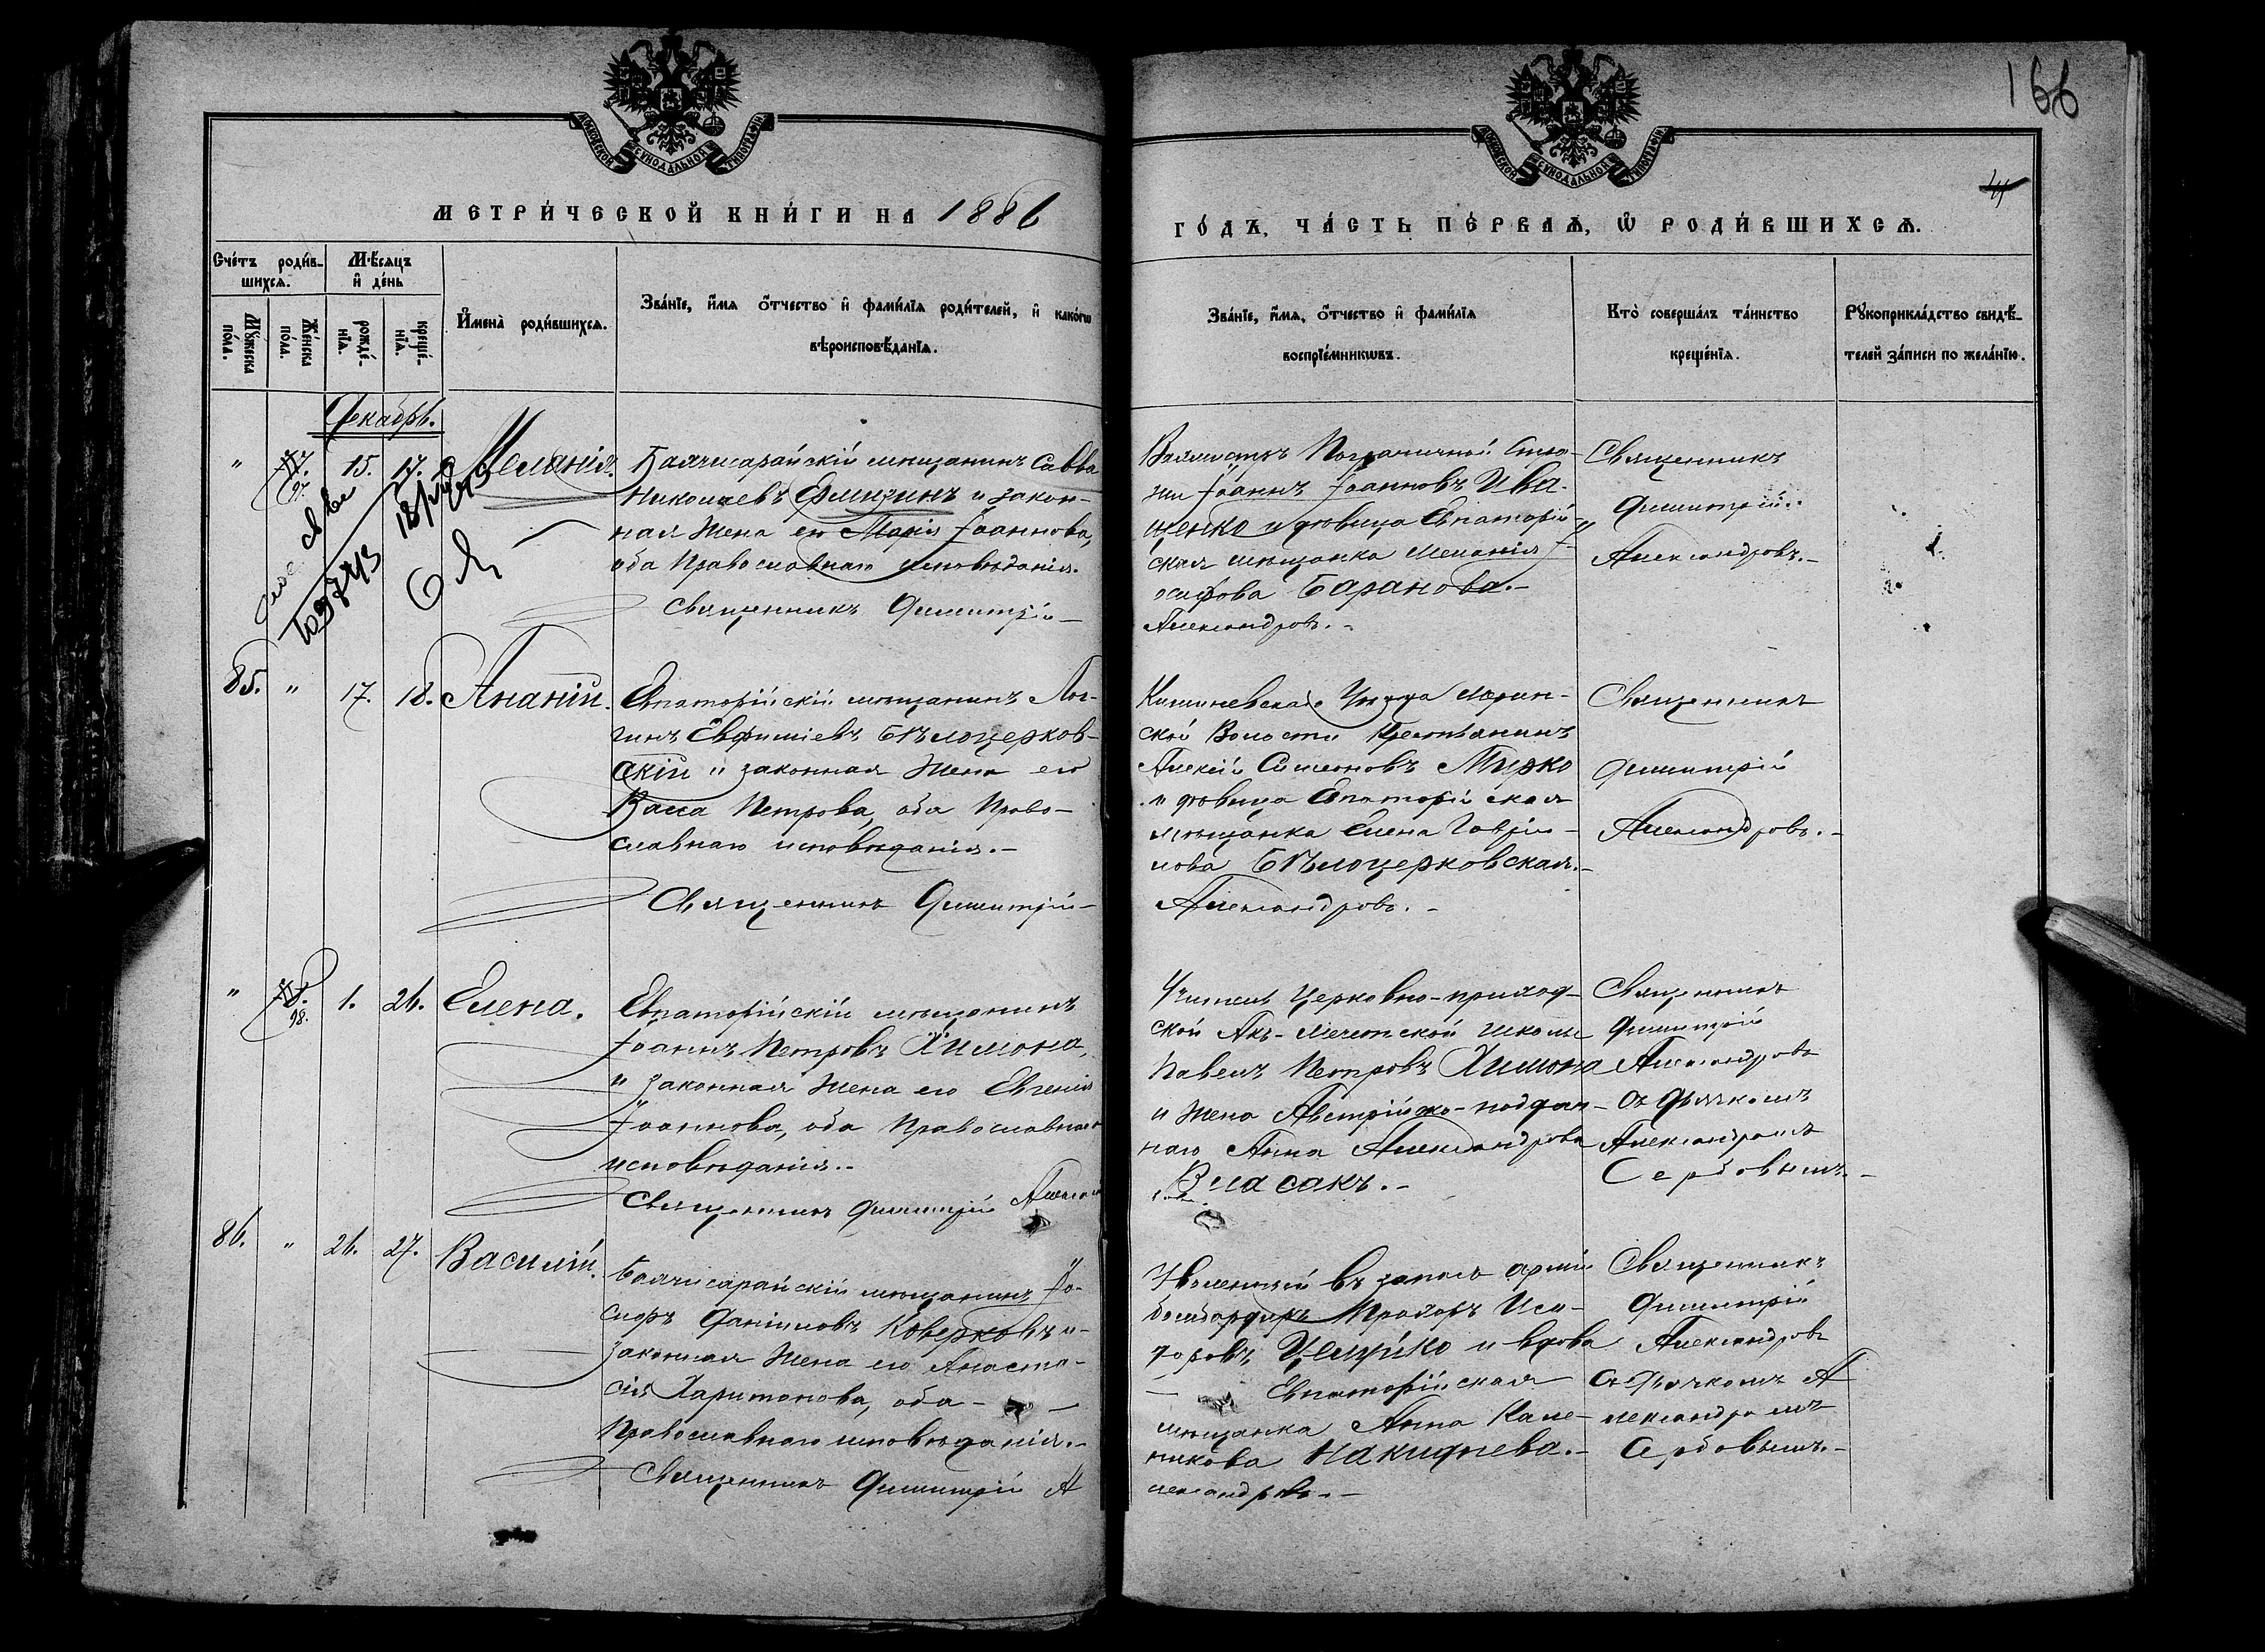 166
МОСКОВСКОЙ СѴНОДАЛЬНОЙ ТИПОГРАФІИ
МОСКОВСКОЙ СѴНОДАЛЬНОЙ ТИПОГРАФІИ
МЕТРИ́ЧЕСКОЙ КНИ́ГИ НА 1886
ГО́ДЪ, ЧА́СТЬ ПЕ́РВАѦ, Ѡ҆ РОДИ́ВШИХСѦ.
Сче́тъ роди́в-
шихсѧ.
Мѣ́сѧцъ
и҆ де́нь
Мꙋ́жеска
по́ла.
Же́нска
по́ла.
рожде́-
нїѧ.
креще́-
нїѧ.
И҆мена̀ роди́вшихсѧ.
Зва́нїе, и҆́мѧ ѻ҆́тчество и҆ фами́лїѧ роди́телей, и҆ како́гѡ
вѣроисповѣ́данїѧ.
Зва́нїе, и҆́мѧ, ѻ҆́тчество и҆ фами́лїѧ
воспрїе́мникѡвъ.
Кто̀ соверша́лъ та́инство
креще́нїѧ.
Рꙋкоприкла́дство свидѣ́-
телей за́писи по жела́нїю.
Декабрь.
" 97. 15. 17. Меланія.
Бахчисарайскій мѣщанинъ Савва
Николаевъ и закон-
ная жена его Марія Іоаннова,
оба Православнаго исповѣданія.
Священникъ Димитрій
Вахмистръ Пограничной Стра-
жи Іоаннъ Іоанновъ Ива-
щенко и дѣвица Евпаторій-
ская мѣщанка Меланія І-
осифова Баранова.-
Александровъ.-
Священникъ
Димитрій
Александровъ.-
85. " 17. 18. Ананій.
Евпаторійскій мѣщанинъ Лог-
гинъ Евфиміевъ Бѣлоцерков-
скій и законная жена его
Васса Петрова, оба Право-
славнаго исповѣданія.-
Священникъ Димитрій-
Кишиневскаго Уѣзда
ской Волости Крестьянинъ
Алексій Симеоновъ Мирко
и дѣвица Евпаторійская
мѣщанка Елена Гаврiи-
лова Бѣлоцерковская.-
Александровъ.-
Священникъ
Димитрій
Александровъ.-
" 98. 1. 26. Елена.
Евпаторійскій мѣщанинъ
Іоаннъ Петровъ Химона,
и законная жена его Евгенія
Іоаннова, оба Православнаго
исповѣданія.-
Священникъ Димитрій
Учитель Церковно-приход-
ской Акъ-Мечетской школы
Павелъ Петровъ Химона
и жена Австрійско-поддан-
наго Анна Александрова
Власакъ.-
Священникъ
Димитрій
Александровъ
съ дьячкомъ
Александромъ
Сербовымъ.-
86. " 26. 27. Василій.
Бахчисарайскій мѣщанинъ Іо-
сифъ Даніиловъ Коверковъ и-
законная жена его Анаста-
сія Харитонова, оба-
Православнаго исповѣданія.-
Священникъ Димитрій А
Уволенный въ запасъ арміи
бомбардиръ Прохоръ Иси-
доровъ и вдова
Евпаторійская
мѣщанка Анна
Накиднева.-
лександровъ.-
Священникъ
Димитрій
Александровъ
Съ дьячкомъ А
лександромъ
Сербовымъ.-